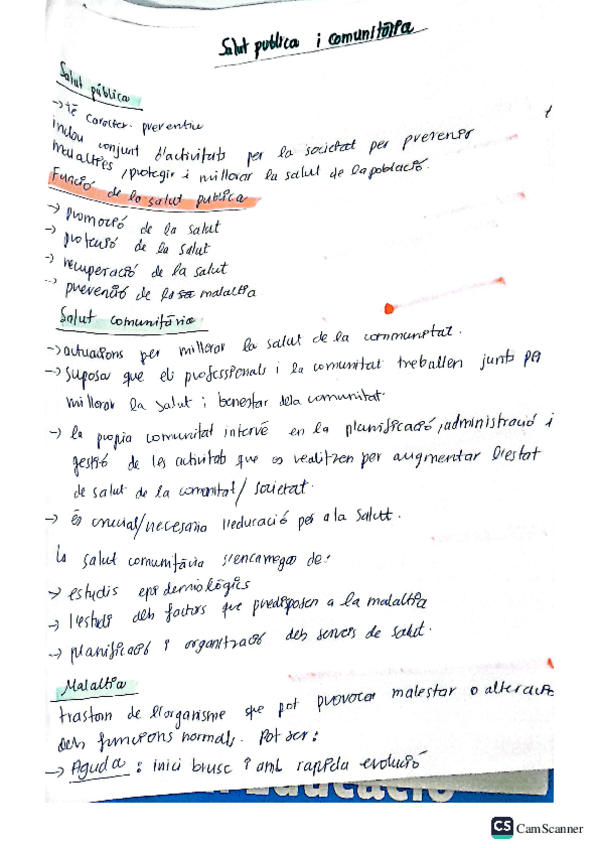 Salut publica i comunitària
Salut pública
→ té caràcter preventiu
inclou conjunt d'activitats per la societat per prevenir
malalties, protegir i millorar la salut de la població.
Funció de la salut publica
→ promoció de la salut
→ protecció de la salut
→ recuperació de la salut
→ prevenció de la malaltia
Salut comunitària
→ actuacions per millorar la salut de la communitat.
→ suposa que els professionals i la comunitat treballen junts per
millorar la salut i benestar de la comunitat.
→ la propia comunitat intervé en la planificació, administració i
gestió de les activitats que es realitzen per augmentar l'estat
de salut de la comunitat/societat.
→ és crucial/necesaria l'educació per a la salut.
la salut comunitària s'encarrega de:
→ estudis epidemiològics
→ l'estudi dels factors que predisposen a la malaltia
→ planificació i organització dels serveis de salut.
Malaltia
trastorn de l'organisme que pot provocar malestar o alteració
dels funcions normals. Pot ser:
→ Aguda: inici brusc i amb rapida evolució
Educació
CS CamScanner